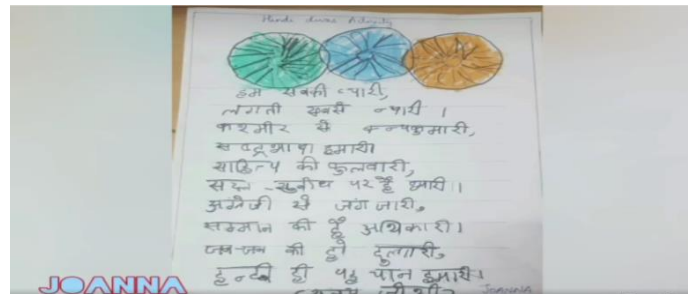 Hindi diwas Activity
हम सबकी प्यारी,
लगती सबसे न्यारी ।
कश्मीर से कन्याकुमारी,
राष्ट्रभाषा हमारी।
साहित्य की फुलवारी,
सरल-सुबोध पर है हमारी।
अंग्रेजी से जंग जारी,
सम्मान की है अधिकारी।
जन-जन की हो दुलारी,
हिन्दी ही पहचान हमारी।
JOANNA
JOANNA